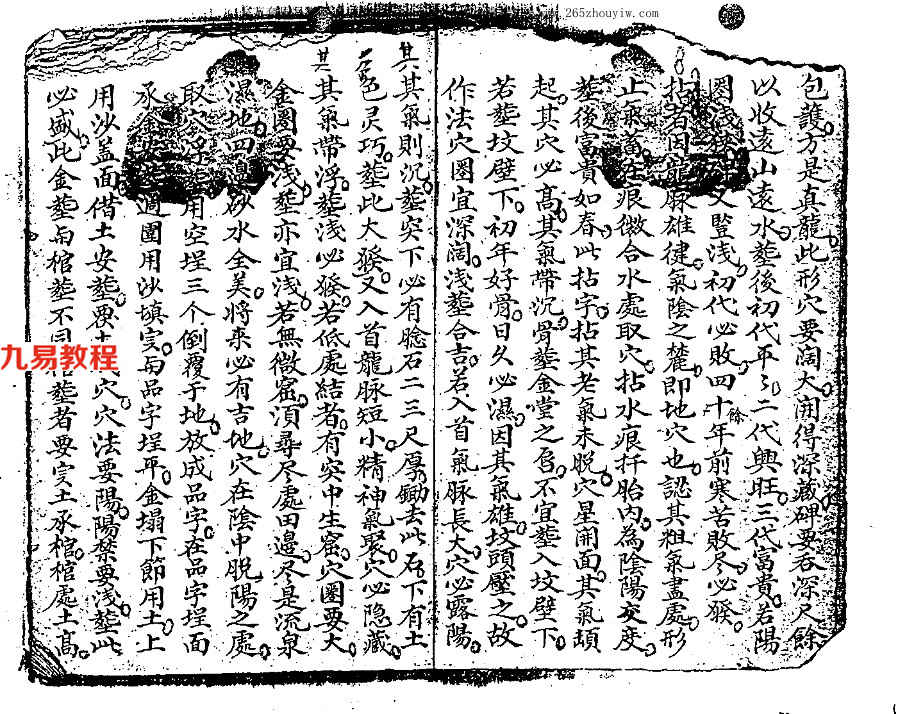 www.265zhouyiw.com
包護方是真龍此形穴要闊大開得深藏碑要吞深尺餘
以收遠山遠水塟後初代平々二代興旺三代富貴若陽
圈淺 又豎淺初代必敗四十餘年前寒苦敗尽必發
拈者因龍脉雄健氣陰之麓即地穴也認其粗氣盡處形
止氣畜在痕微合水處取穴拈水痕扦胎內為陰陽交度
塟後富貴如春此拈字拈其老氣未脫穴星開面其氣頡
起其穴必高其氣帶沉骨塟金堂之后不宜塟入坟壁下
若塟坟壁下初年好骨日久必濕因其氣雄坟頭壓之故
作法穴圈宜深闊淺塟合吉若入首氣脉長大穴必露陽
其其氣則沉塟突下必有賒石二三尺厚鋤去此石下有土
五色灵巧塟此大發又入首龍脉短小精神氣聚穴必隐藏
其其氣帶浮塟淺必發若低處結者有突中生窩穴圈要大
金圈要淺塟亦宜淺若無微窩湏尋尽處田邊尽是流泉
濕地四 砂水全美將來必有吉地穴在陰中脫陽之處
取 浮 用空埕三个倒覆于地放成品字在品字埕面
承金 週圍用沙填实與品字埕平金塌下節用土上
用沙盖面借土安塟 土 穴穴法要陽陽禁要淺塟此
必盛此金塟與棺塟不同 塟者要实土承棺棺底土高
九易教程